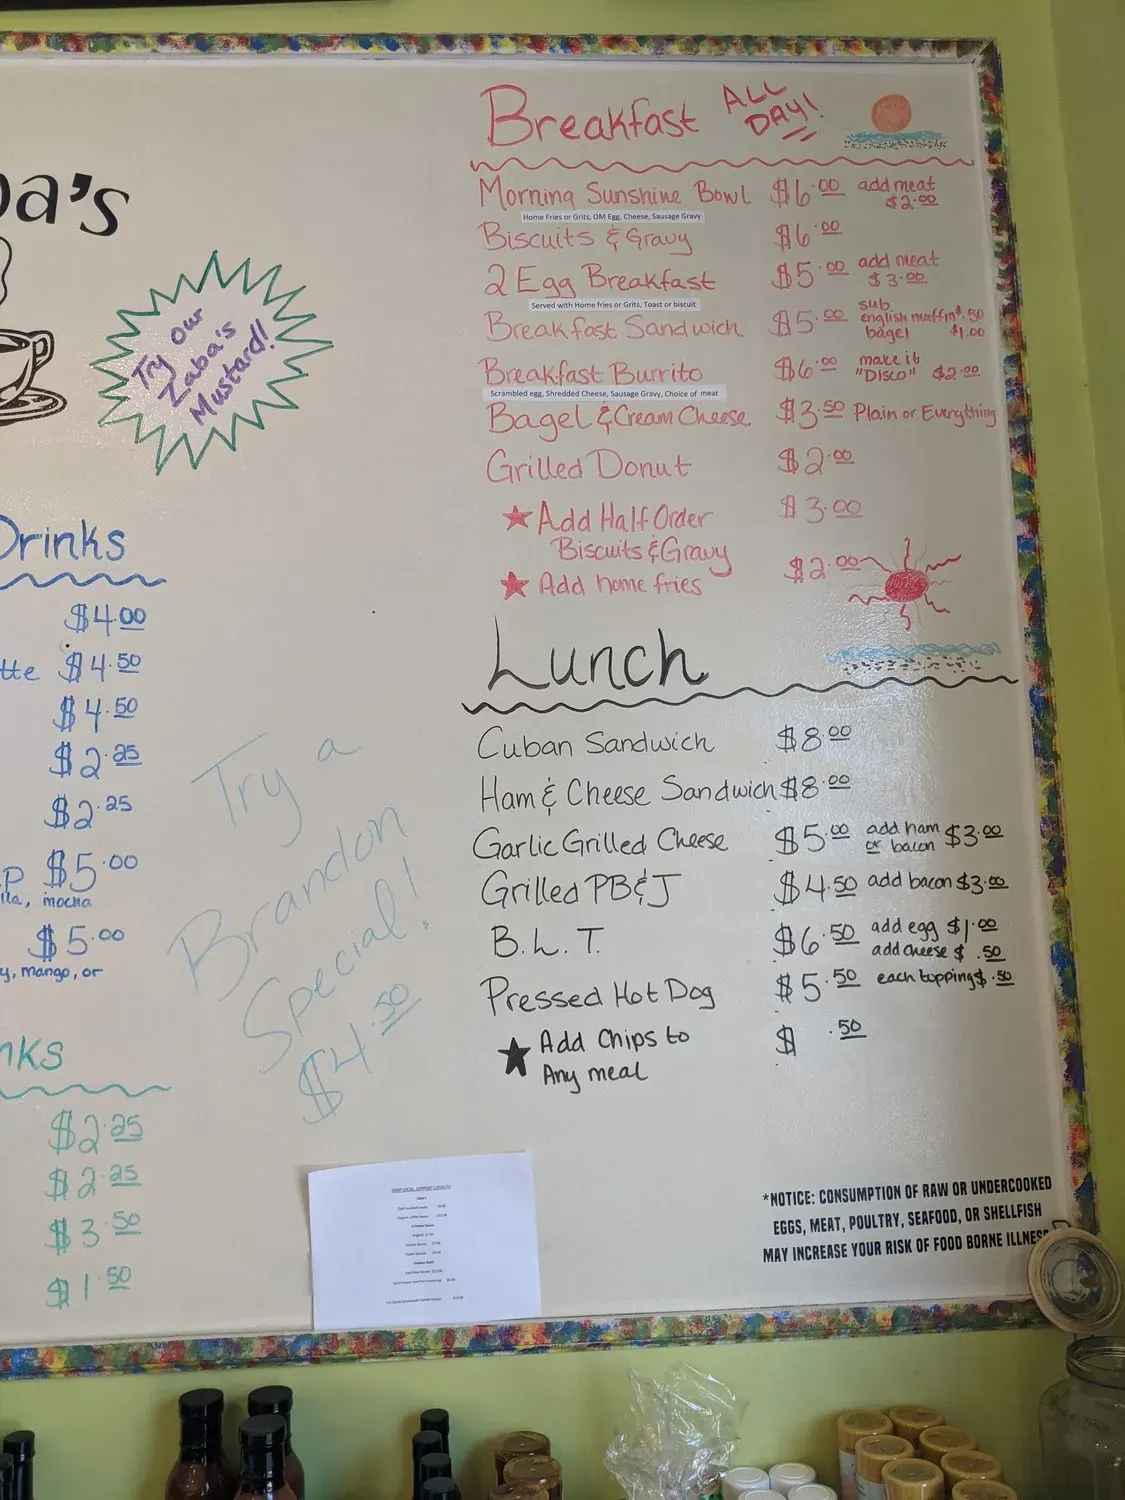 ba's
Try our
Zaba's
Mustard!
Drinks
$4.00
tte $4.50
$4.50
$2.25
$2.25
P $5.00
lla, mocha
$5.00
y, mango, or
nks
$2.25
$2.25
$3.50
$1.50
Try a
Brandon
Special!
$4.50
Breakfast ALL DAY!
Morning Sunshine Bowl $6.00 add meat $2.00
Home Fries or Grits, OM Egg, Cheese, Sausage Gravy
Biscuits & Gravy $6.00
2 Egg Breakfast $5.00 add meat $3.00
Served with Home fries or Grits, Toast or biscuit
Breakfast Sandwich $5.00 sub english muffin $.50 bagel $1.00
Breakfast Burrito $6.00 make it "DISCO" $2.00
Scrambled egg, Shredded Cheese, Sausage Gravy, Choice of meat
Bagel & Cream Cheese $3.50 Plain or Everything
Grilled Donut $2.00
★ Add Half Order $3.00
Biscuits & Gravy
★ Add home fries $2.00
Lunch
Cuban Sandwich $8.00
Ham & Cheese Sandwich $8.00
Garlic Grilled Cheese $5.00 add ham or bacon $3.00
Grilled PB&J $4.50 add bacon $3.00
B.L.T. $6.50 add egg $1.00 add cheese $.50
Pressed Hot Dog $5.50 each topping $.50
★ Add Chips to $.50
Any meal
SHOP LOCAL, SUPPORT LOCAL!!!
*NOTICE: CONSUMPTION OF RAW OR UNDERCOOKED
EGGS, MEAT, POULTRY, SEAFOOD, OR SHELLFISH
MAY INCREASE YOUR RISK OF FOOD BORNE ILLNESS